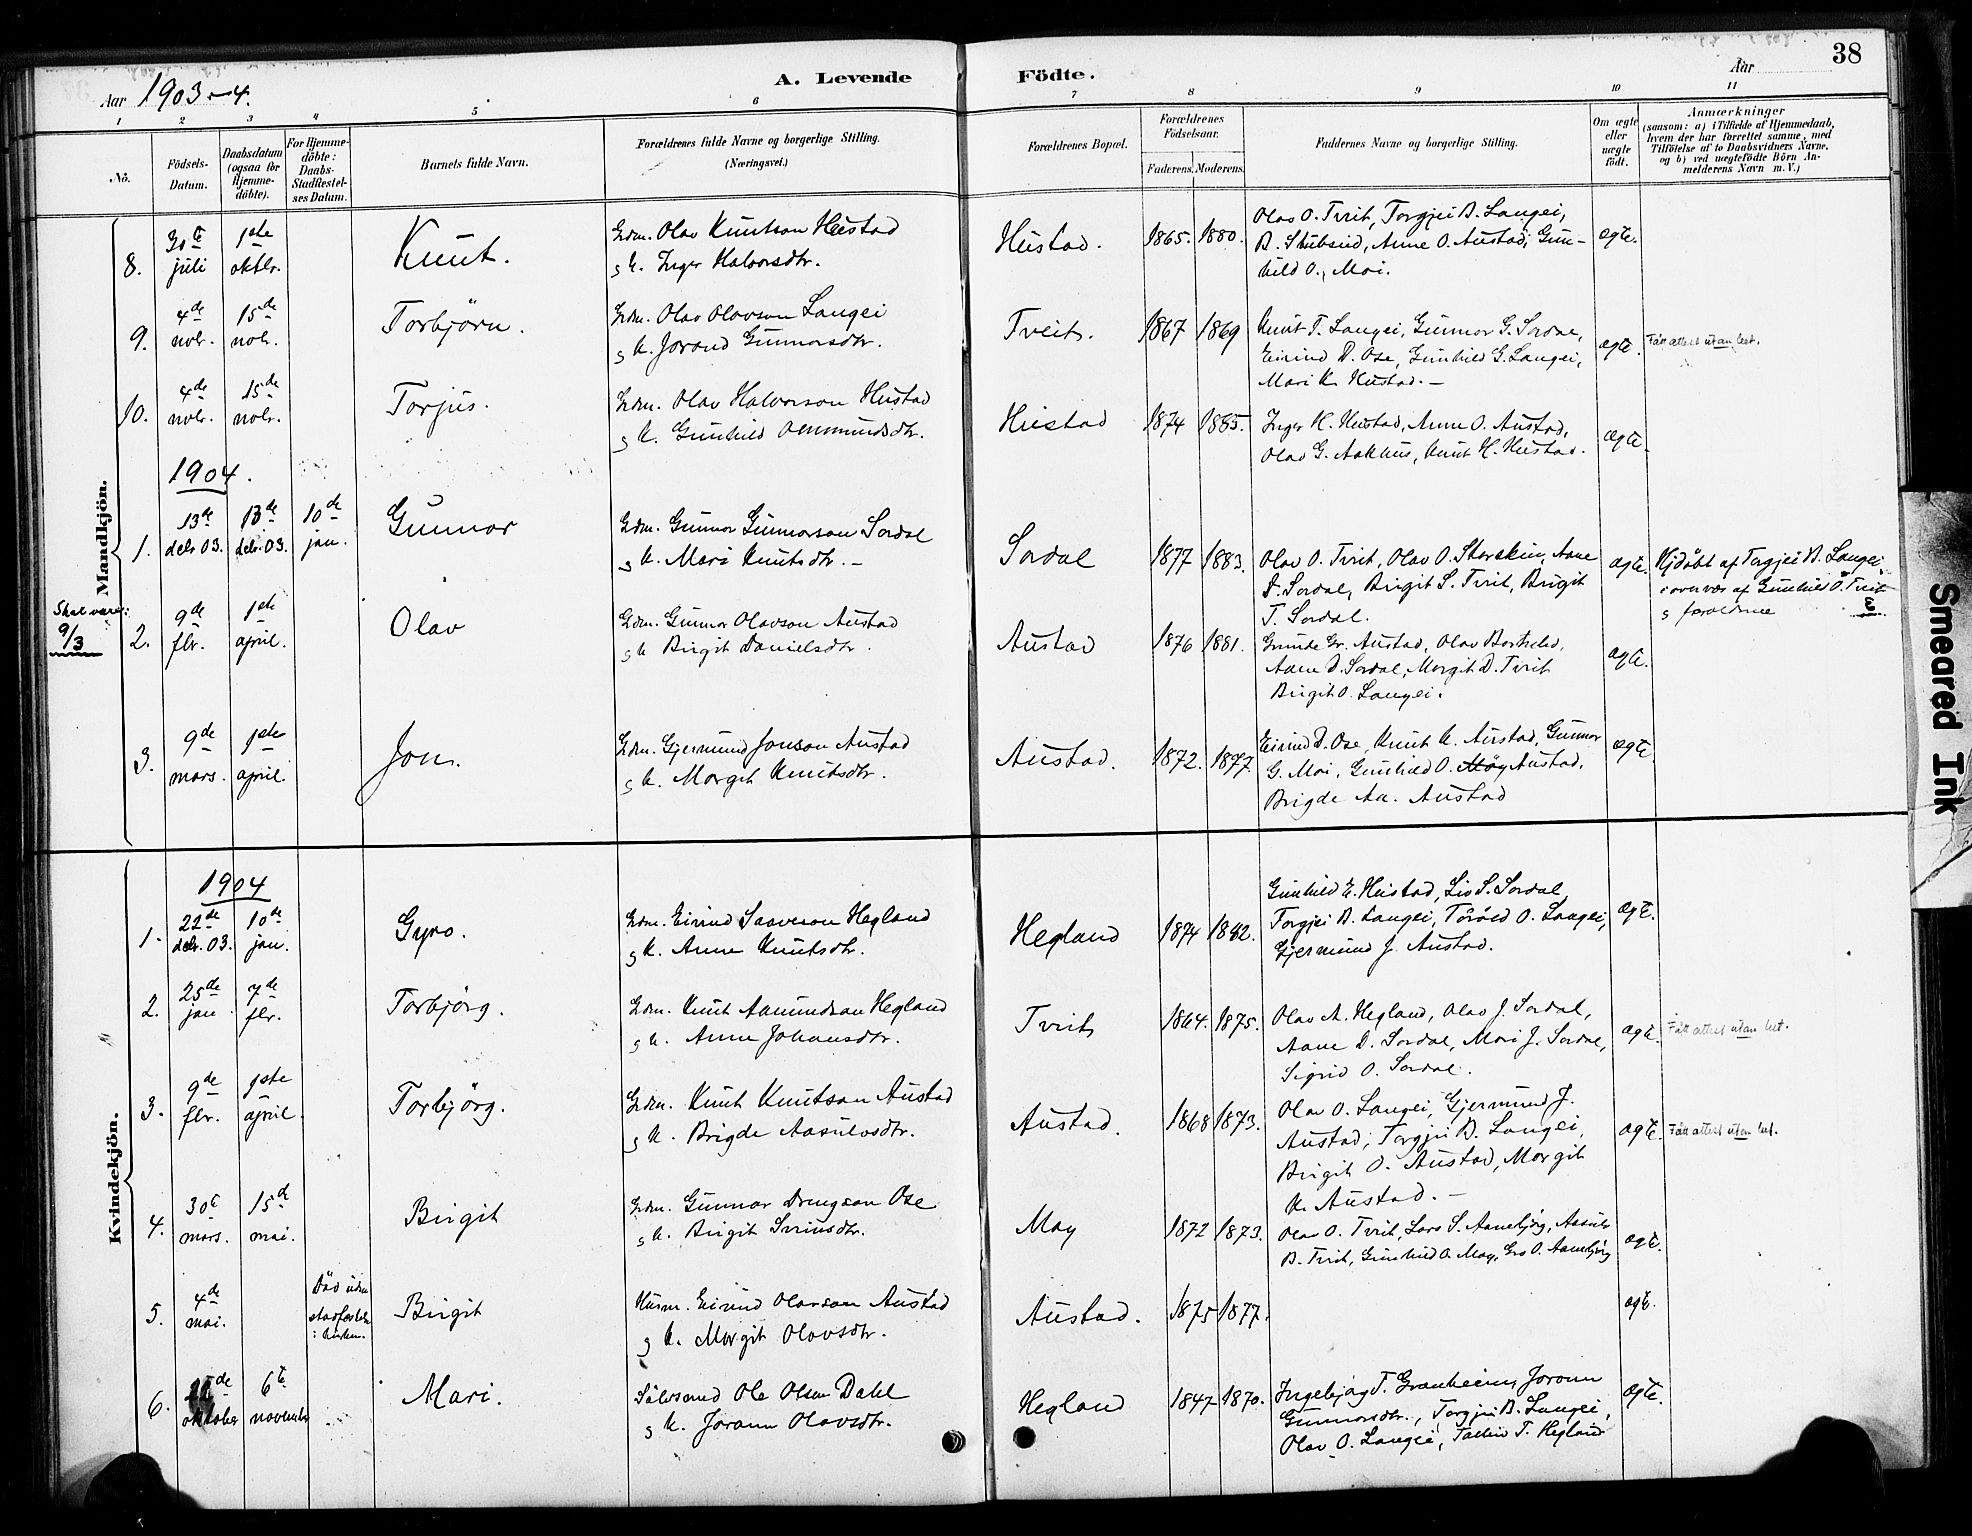 Aar 1903-4.
A. Levende Födte.
Aar
38
1 2 3 4 5 6 7 8 9 10 11
No.
Födsels-Datum.
Daabsdatum (ogsaa for Hjemme-döbte).
For Hjemme-döbte: Daabs-Stadfæstel-ses Datum.
Barnets fulde Navn.
Forældrenes fulde Navne og borgerlige Stilling. (Næringsvei.)
Forældrenes Bopæl.
Forældrenes Födselsaar.
Faderens. Moderens.
Faddernes Navne og borgerlige Stilling.
Om ægte eller uægte födt.
Anmærkninger
(saasom: a) i Tilfælde af Hjemmedaab,
hvem der har forrettet samme, med
Tilföielse af to Daabsvidners Navne,
og b) ved uægtefödte Börn An-
melderens Navn m. V.)
Mandkjön.
8. 30te juli 1ste oktbr. Knut. Gdm. Olav Knutson Hustad
og k. Inger Halvorsdtr. Hustad. 1865. 1880. Olav O. Tveit, Torgjei B. Langei,
Anne O. Austad, Gun-
hild O. Moi. ægte.
9. 4de nobr. 15de nobr. Torbjörn. Gdm. Olav Olavson Langei
og k. Jorand Gunnarsdtr. Tveit. 1867 1869 Knut T. Langei, Gunnar G. Sordal,
Eivind D. Ose, Gunhild G. Langei,
Mari K. Hustad. - ægte. Fått attest utan lut.
10. 4de nobr. 15de nobr. Torjus. Gdm. Olav Halvorson Hustad
og k. Gunhild Aanmundsdtr. Hustad 1874 1885. Inger H. Hustad, Anne O. Austad,
Olav G. Aakhus, Knut H. Hustad. ægte.
1904.
1. 13de debr. 03. 13de debr. 03. 10de jan. Gunnar Gdm. Gunnar Gunnarson Sordal
og k. Mari Knutsdtr. - Sordal 1877 1883. Olav O. Tveit, Olav O. Storskin, Aane
Sordal, Birgit S. Tveit, Birgit
T. Sordal. ægte. Hjdöbt af Torgjei B. Langei
i overvær af Gunhild O. Tveit
og forældrene
Skal være: 9/3
2. 9de fbr. 1ste april. Olav Gdm. Gunnar Olavson Austad
og k Birgit Danielsdtr. Austad 1876 1881. Grunde Gr. Austad, Olav
Aane D. Sordal, Margit D. Tveit
Birgit O. Langei. ægte.
3. 9de mars. 1ste april. Jon. Gdm. Gjermund Jonson Austad
og k. Margit Knutsdtr. Austad. 1872. 1877. Eivind D. Ose, Knut K. Austad, Gunnar
G. Moi, Gunhild O. Austad,
Brigde Aa. Austad ægte
Kvindekjön.
1904
1. 22de debr. 03. 10de jan. Gyro. Gdm. Eivind Saaveson Hegland
og k. Anne Knutsdtr. Hegland 1874 1882. Gunhild E. Hustad, Liv S. Sordal,
Torgjei B. Langei, Torleif O. Langei,
Gjermund J. Austad. ægte.
2. 25de jan. 7de fbr. Torbjörg. Gdm. Knut Aamundson Hegland
og k. Anne Johansdtr. Tveit 1864. 1875. Olav A. Hegland, Olav J. Sordal,
Aane D. Sordal, Mari J. Sordal,
Sigrid O. Sordal. ægte. Fått attest utan lut.
3. 9de fbr. 1ste april. Torbjörg. Gdm. Knut Knutson Austad
og k. Brigde Aasulvsdtr. Austad. 1868 1873. Olav O. Langei, Gjermund J.
Austad, Torgjei B. Langei,
Birgit O. Austad, Margit
K. Austad. - ægte. Fått attest utan lut.
4. 30te mars. 15de mai. Birgit Gdm. Gunnar Drengson Ose
og k. Birgit Sveinsdtr. May 1872 1873. Olav O. Tveit, Lars S. Aanebjörg, Aasulv
B. Tveit, Gunhild O. May, Gro O. Aanebjörg ægte.
5. 4de mai. Död uden stadfæstelse i kirken. Birgit Husm. Eivind Olavson Austad
og k. Margit Olavsdtr. Austad. 1875 1877. ægte.
6. oktober 6te november Mari. Sölvsmed Ole Olsen Dahl
og k. Jorann Olavsdtr. Hegland 1847 1870. Ingebjörg T. Granheim, Jorann
Gunnarsdtr., Torgjei B. Langei,
Olav O. Langei, T. Hegland ægte.
Smeared Ink